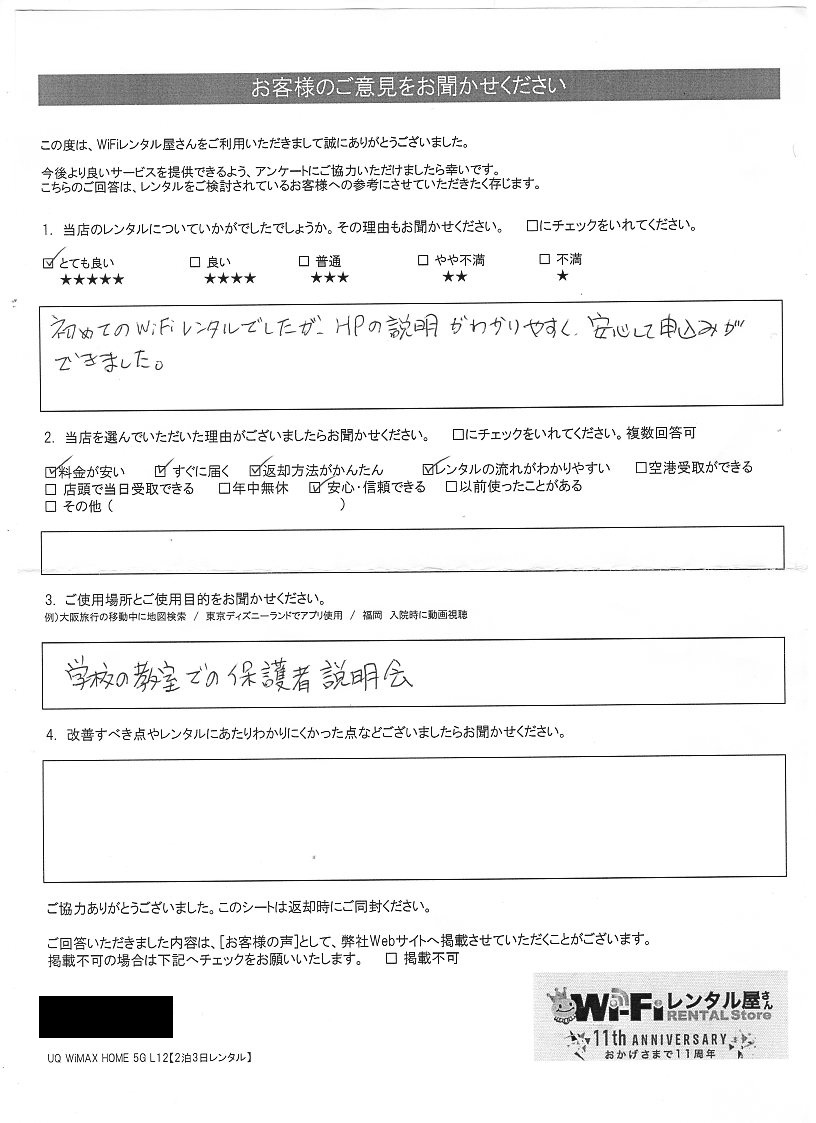 お客様のご意見をお聞かせください
この度は、WiFiレンタル屋さんをご利用いただきまして誠にありがとうございました。
今後より良いサービスを提供できるよう、アンケートにご協力いただけましたら幸いです。
こちらのご回答は、レンタルをご検討されているお客様への参考にさせていただきたく存じます。
1. 当店のレンタルについていかがでしたでしょうか。その理由もお聞かせください。 □にチェックをいれてください。
☑とても良い □ 良い □ 普通 □ やや不満 □ 不満
★★★★★ ★★★★ ★★★ ★★ ★
初めてのWiFiレンタルでしたが、HPの説明がわかりやすく、安心して申込みが
できました。
2. 当店を選んでいただいた理由がございましたらお聞かせください。 □にチェックをいれてください。複数回答可
☑料金が安い ☑ すぐに届く ☑返却方法がかんたん ☑レンタルの流れがわかりやすい □空港受取ができる
□ 店頭で当日受取できる □年中無休 ☑ 安心・信頼できる □以前使ったことがある
□ その他 ( )
3. ご使用場所とご使用目的をお聞かせください。
例)大阪旅行の移動中に地図検索 / 東京ディズニーランドでアプリ使用 / 福岡 入院時に動画視聴
学校の教室での保護者説明会
4. 改善すべき点やレンタルにあたりわかりにくかった点などございましたらお聞かせください。
ご協力ありがとうございました。このシートは返却時にご同封ください。
ご回答いただきました内容は、[お客様の声]として、弊社Webサイトへ掲載させていただくことがございます。
掲載不可の場合は下記へチェックをお願いいたします。 □ 掲載不可
Wi-Fiレンタル屋さん
RENTAL Store
11th ANNIVERSARY
おかげさまで11周年
UQ WiMAX HOME 5G L12【2泊3日レンタル】